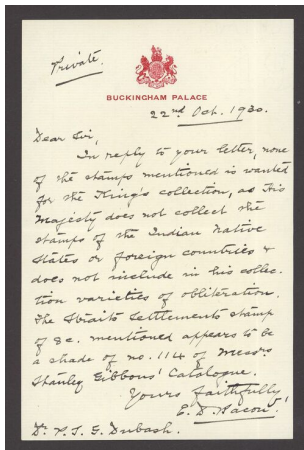 Private.
BUCKINGHAM PALACE
22nd Oct. 1930.
Dear Sir,
In reply to your letter, none
of the stamps mentioned is wanted
for the King's collection, as His
Majesty does not collect the
stamps of the Indian Native
States or foreign countries &
does not include in his collec-
tion varieties of obliteration.
The Straits Settlements stamp
of 8c. mentioned appears to be
a shade of no. 114 of Messrs
Stanley Gibbons' Catalogue.
Yours faithfully
E. D. Bacon.
Dr. P. J. G. Dubash.